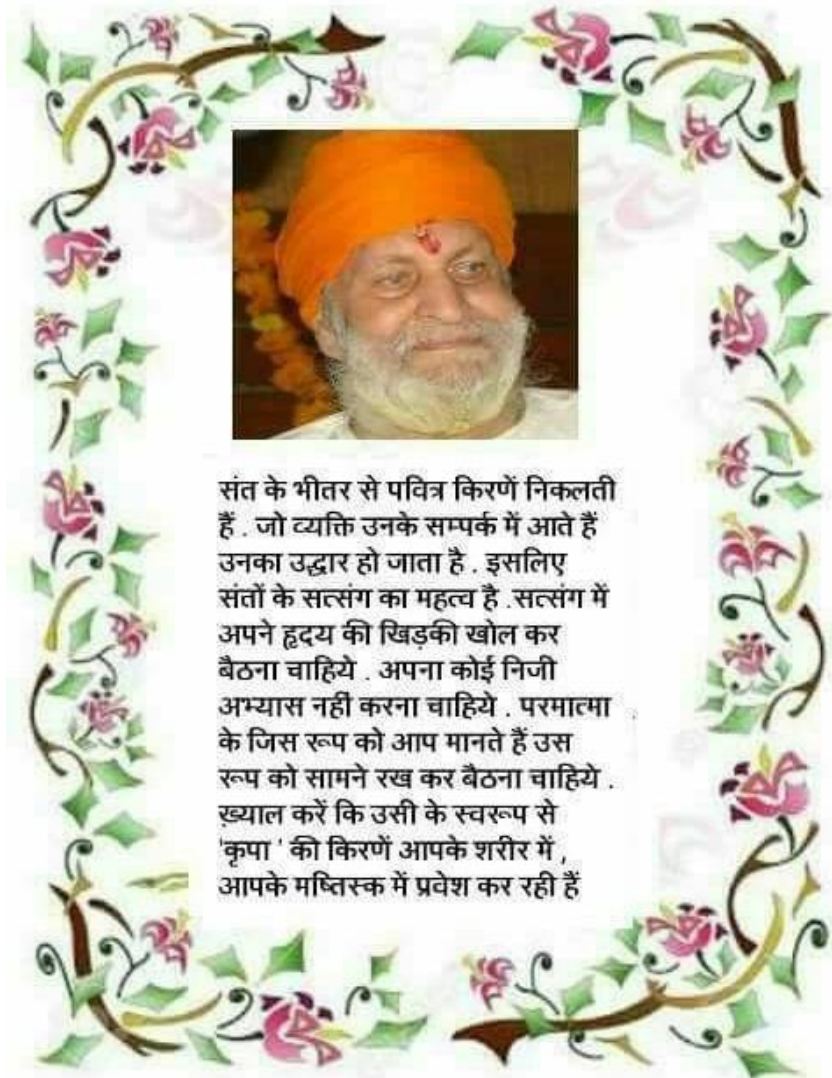 संत के भीतर से पवित्र किरणें निकलती
हैं . जो व्यक्ति उनके सम्पर्क में आते हैं
उनका उद्धार हो जाता है . इसलिए
संतों के सत्संग का महत्व है .सत्संग में
अपने हृदय की खिड़की खोल कर
बैठना चाहिये . अपना कोई निजी
अभ्यास नहीं करना चाहिये . परमात्मा
के जिस रूप को आप मानते हैं उस
रूप को सामने रख कर बैठना चाहिये .
ख़्याल करें कि उसी के स्वरूप से
'कृपा ' की किरणें आपके शरीर में ,
आपके मष्तिस्क में प्रवेश कर रही हैं